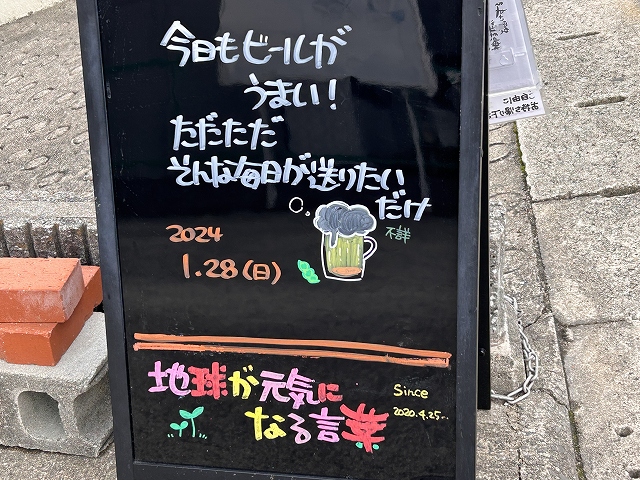 今日もビールが
うまい！
ただただ
そんな毎日が送りたい
だけ
不詳
2024
1.28(日)
地球が元気に
なる言葉
Since
2020.4.25..
ご自由に
お持ち帰り下さい